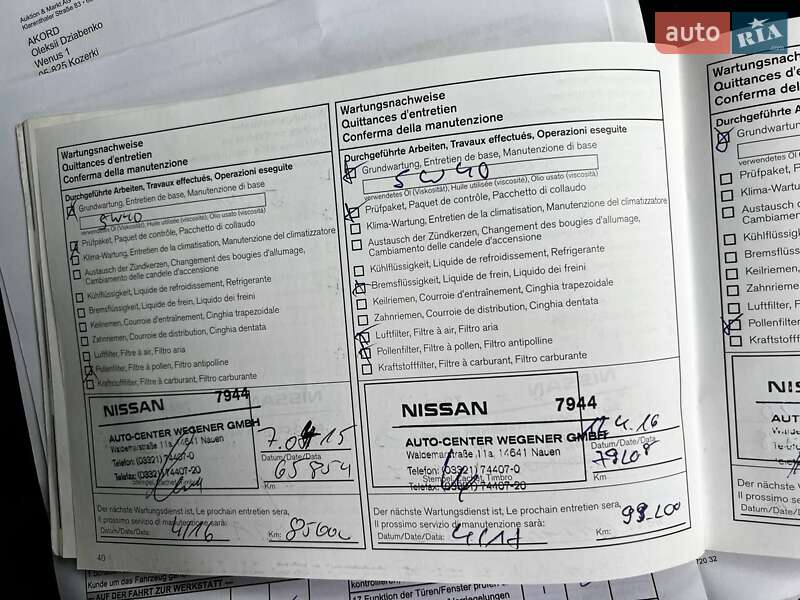 auto RIA.com
Auktion & Markt AG
Klarenthaler Straße 83 -
AKORD
Oleksii Dziabenko
Wenus 1
05-825 Kozerki
Wartungsnachweise
Quittances d'entretien
Conferma della manutenzione
Durchgeführte Arbeiten, Travaux effectués, Operazioni eseguite
Grundwartung, Entretien de base, Manutenzione di base
5W40
verwendetes Öl (Viskosität), Huile utilisée (viscosité), Olio usato (viscosità)
Prüfpaket, Paquet de contrôle, Pacchetto di collaudo
Klima-Wartung, Entretien de la climatisation, Manutenzione del climatizzatore
Austausch der Zündkerzen, Changement des bougies d'allumage,
Cambiamento delle candele d'accensione
Kühlflüssigkeit, Liquide de refroidissement, Refrigerante
Bremsflüssigkeit, Liquide de frein, Liquido dei freini
Keilriemen, Courroie d'entraînement, Cinghia trapezoidale
Zahnriemen, Courroie de distribution, Cinghia dentata
Luftfilter, Filtre à air, Filtro aria
Pollenfilter, Filtre à pollen, Filtro antipolline
Kraftstofffilter, Filtre à carburant, Filtro carburante
NISSAN 7944
AUTO-CENTER WEGENER GMBH
Waldemarstraße 11a, 14641 Nauen
Telefon: (03321) 74407-0
Telefax: (03321) 74407-20
Datum/Date/Data
65854
Km
Der nächste Wartungsdienst ist, Le prochain entretien sera,
Il prossimo servizio di manutenzione sarà:
Datum/Date/Data: 4/16 Km: 85000
40
Wartungsnachweise
Quittances d'entretien
Conferma della manutenzione
Durchgeführte Arbeiten, Travaux effectués, Operazioni eseguite
Grundwartung, Entretien de base, Manutenzione di base
5W40
verwendetes Öl (Viskosität), Huile utilisée (viscosité), Olio usato (viscosità)
Prüfpaket, Paquet de contrôle, Pacchetto di collaudo
Klima-Wartung, Entretien de la climatisation, Manutenzione del climatizzatore
Austausch der Zündkerzen, Changement des bougies d'allumage,
Cambiamento delle candele d'accensione
Kühlflüssigkeit, Liquide de refroidissement, Refrigerante
Bremsflüssigkeit, Liquide de frein, Liquido dei freini
Keilriemen, Courroie d'entraînement, Cinghia trapezoidale
Zahnriemen, Courroie de distribution, Cinghia dentata
Luftfilter, Filtre à air, Filtro aria
Pollenfilter, Filtre à pollen, Filtro antipolline
Kraftstofffilter, Filtre à carburant, Filtro carburante
NISSAN 7944
AUTO-CENTER WEGENER GMBH
Waldemarstraße 11a, 14641 Nauen
Telefon: (03321) 74407-0
Stempel, Cachet, Timbro
Telefax: (03321) 74407-20
Datum/Date/Data
Km
Der nächste Wartungsdienst ist, Le prochain entretien sera,
Il prossimo servizio di manutenzione sarà:
Datum/Date/Data: 4/17 Km: 99200
Wartungsnachweise
Quittances d'entretien
Conferma della manutenzione
Durchgeführte Arbeiten,
Grundwartung,
verwendetes Öl
Prüfpaket,
Klima-Wartung,
Austausch
Cambiamento
Kühlflüssigkeit
Bremsflüssigkeit
Keilriemen,
Zahnriemen,
Luftfilter,
Pollenfilter
Kraftstofffilter
NI
AUTO-
Telefon:
Telefax:
Der nächste
Il prossimo
Datum/Date
Kunde um das Fahrzeug
AUF DER FAHRT ZUR WERKSTATT
kontrollieren
17 Funktion der Türen/Fenster prüfen